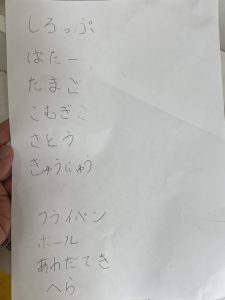 しろっぷ
はたー
たまご
こむぎこ
さとう
きゅうにゅう
フライパン
ボール
あわだてき
へら